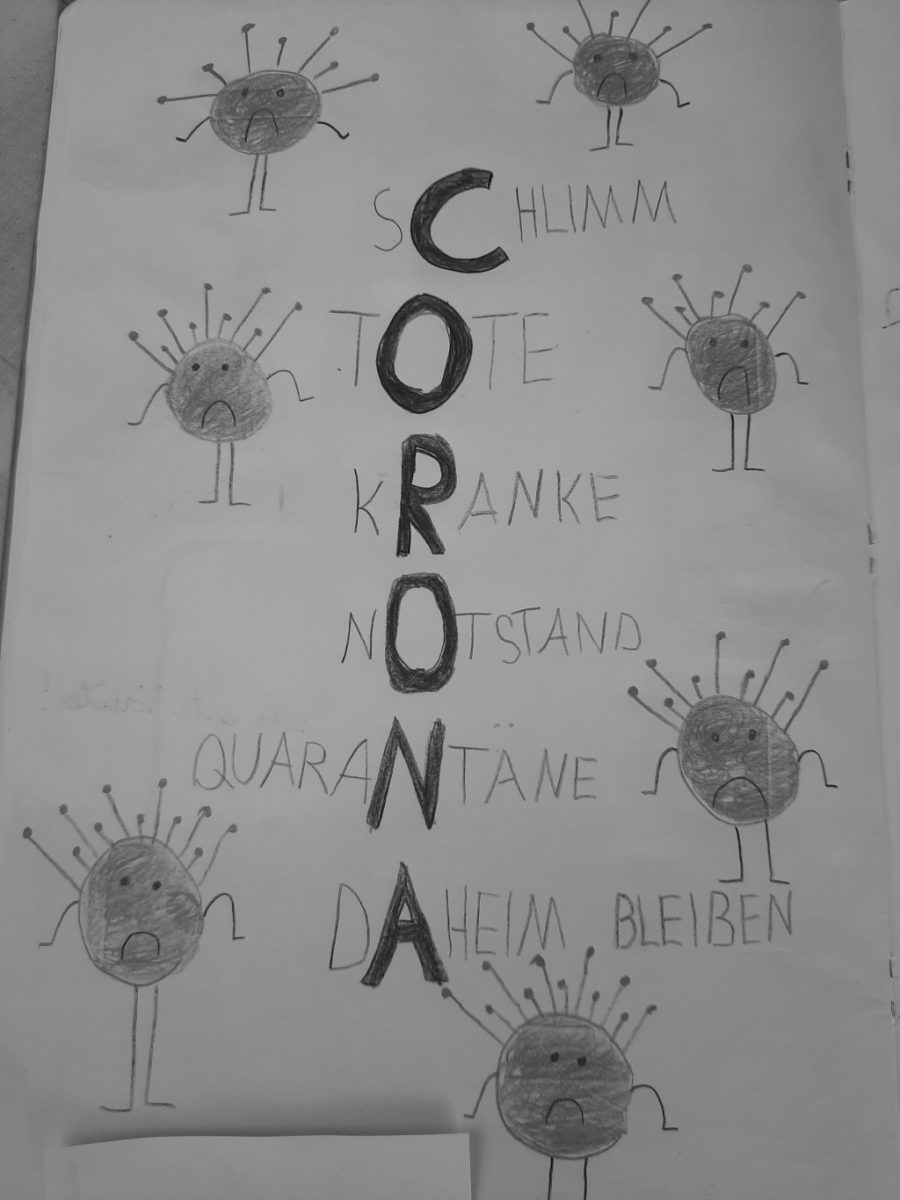 SCHLIMM
TOTE
KRANKE
NOTSTAND
QUARANTÄNE
DAHEIM BLEIBEN